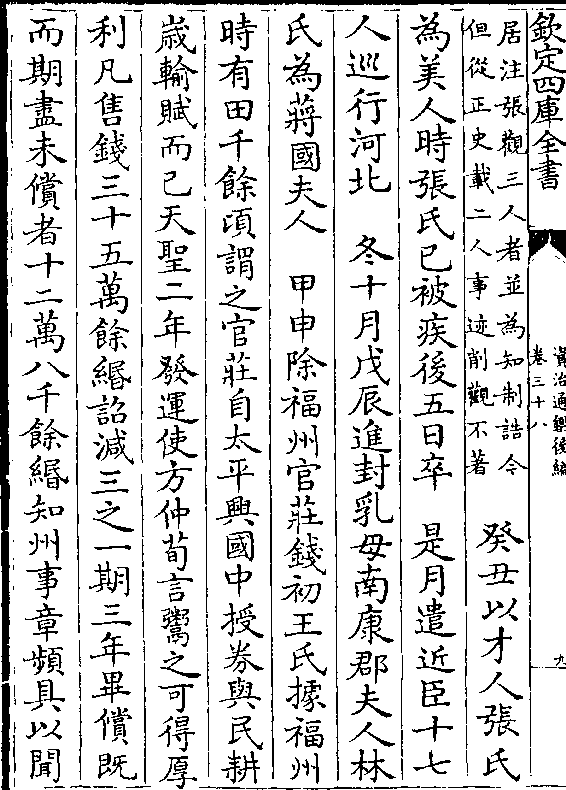 欽定四庫全書
資治通鑑後編
卷三十八
九
居注張觀三人者並為知制誥今
但從正史載二人事迹削觀不著
癸丑以才人張氏
為美人時張氏已被疾後五日卒　是月遣近臣十七
人巡行河北　冬十月戊辰進封乳母南康郡夫人林
氏為蔣國夫人　甲申除福州官莊錢初王氏據福州
時有田千餘頃謂之官莊自太平興國中授券與民耕
歲輸賦而已天聖二年發運使方仲荀言鬻之可得厚
利凡售錢三十五萬餘緡詔減三之一期三年畢償既
而期盡未償者十二萬八千餘緡知州事章頻具以聞